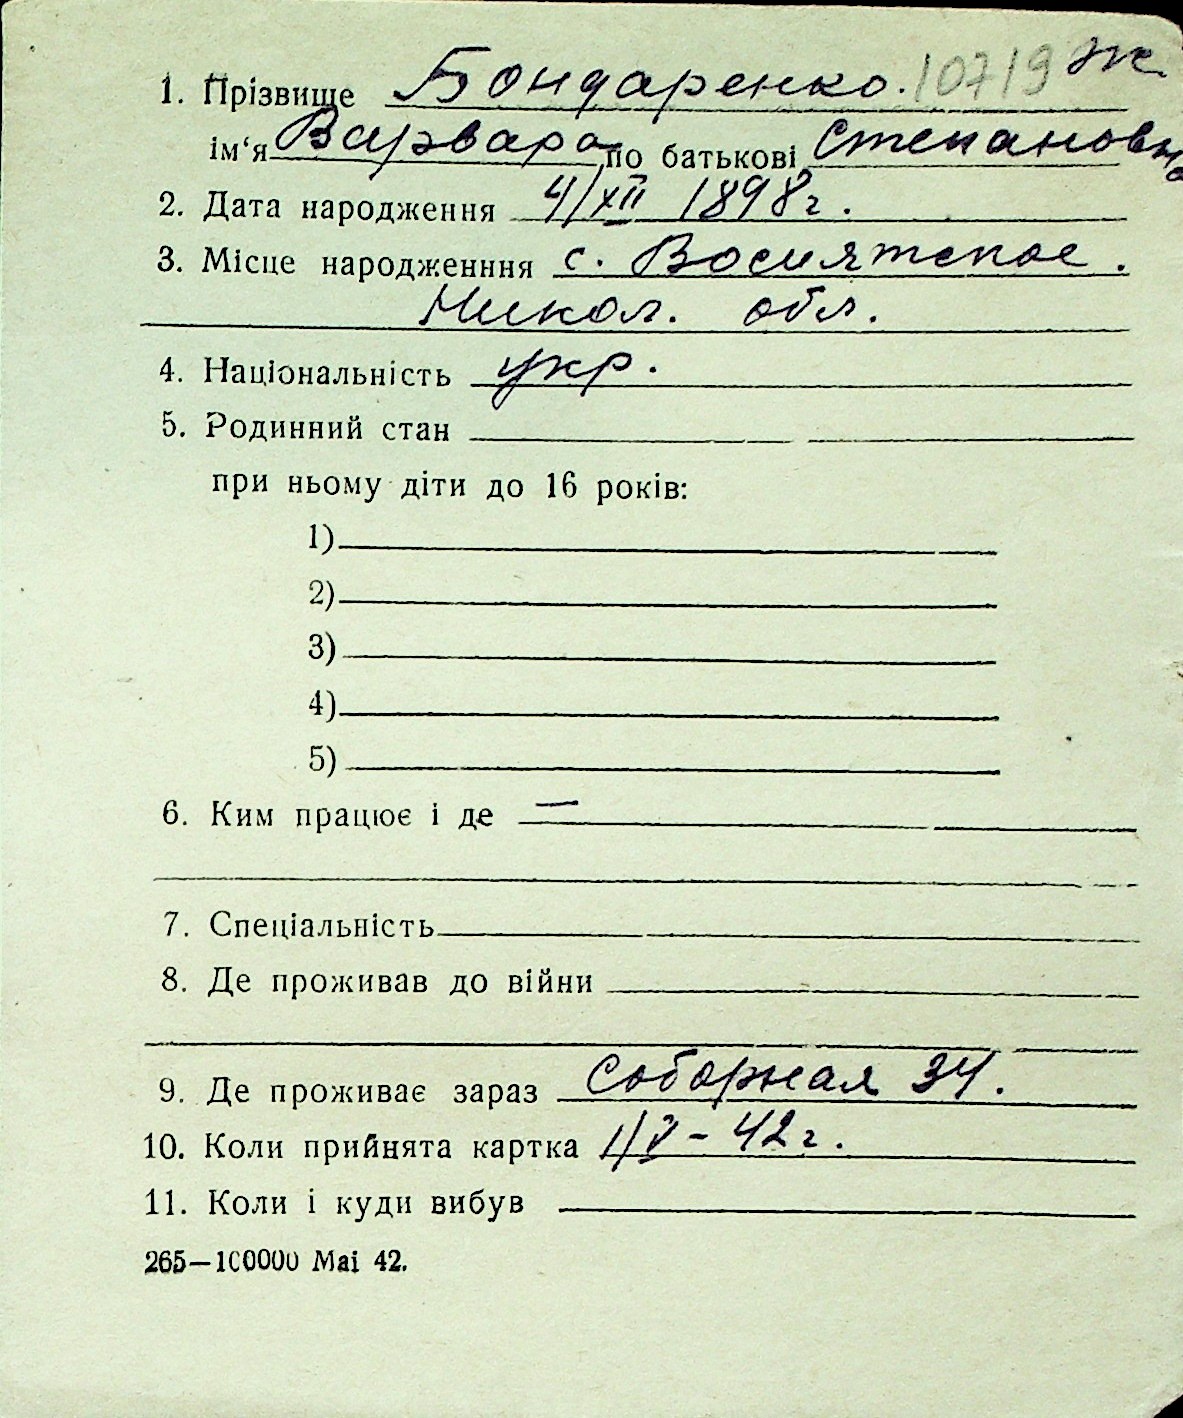 1. Прізвище Бондаренко. 10719 ж.
ім‘я Варвара по батькові Степановна
2. Дата народження 4/XII 1898г.
3. Місце народженння с. Восиятское.
Никол. обл.
4. Національність укр.
5. Родинний стан
при ньому діти до 16 років:
1)
2)
3)
4)
5)
6. Ким працює і де —
7. Спеціальність
8. Де проживав до війни
9. Де проживає зараз Соборная 34.
10. Коли прийнята картка 1/V – 42г.
11. Коли і куди вибув
265—100000 Mai 42.